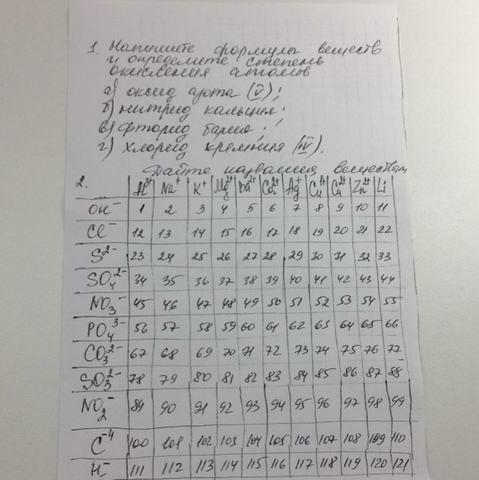 1. Напишите формулы веществ
и определите степень
окисления атомов
а) оксид азота (V);
б) нитрид кальция;
в) фторид бария;
г) хлорид кремния (IV).
Дайте названия веществам
2. Al³⁺ Na⁺ K⁺ Mg²⁺ Ba²⁺ Ca²⁺ Ag⁺ Cu⁺ Cu²⁺ Zn²⁺ Li
OH⁻ 1 2 3 4 5 6 7 8 9 10 11
Cl⁻ 12 13 14 15 16 17 18 19 20 21 22
S²⁻ 23 24 25 26 27 28 29 30 31 32 33
SO₄²⁻ 34 35 36 37 38 39 40 41 42 43 44
NO₃⁻ 45 46 47 48 49 50 51 52 53 54 55
PO₄³⁻ 56 57 58 59 60 61 62 63 64 65 66
CO₃²⁻ 67 68 69 70 71 72 73 74 75 76 77
SO₃²⁻ 78 79 80 81 82 83 84 85 86 87 88
NO₂⁻ 89 90 91 92 93 94 95 96 97 98 99
C⁻⁴ 100 101 102 103 104 105 106 107 108 109 110
H⁻ 111 112 113 114 115 116 117 118 119 120 121